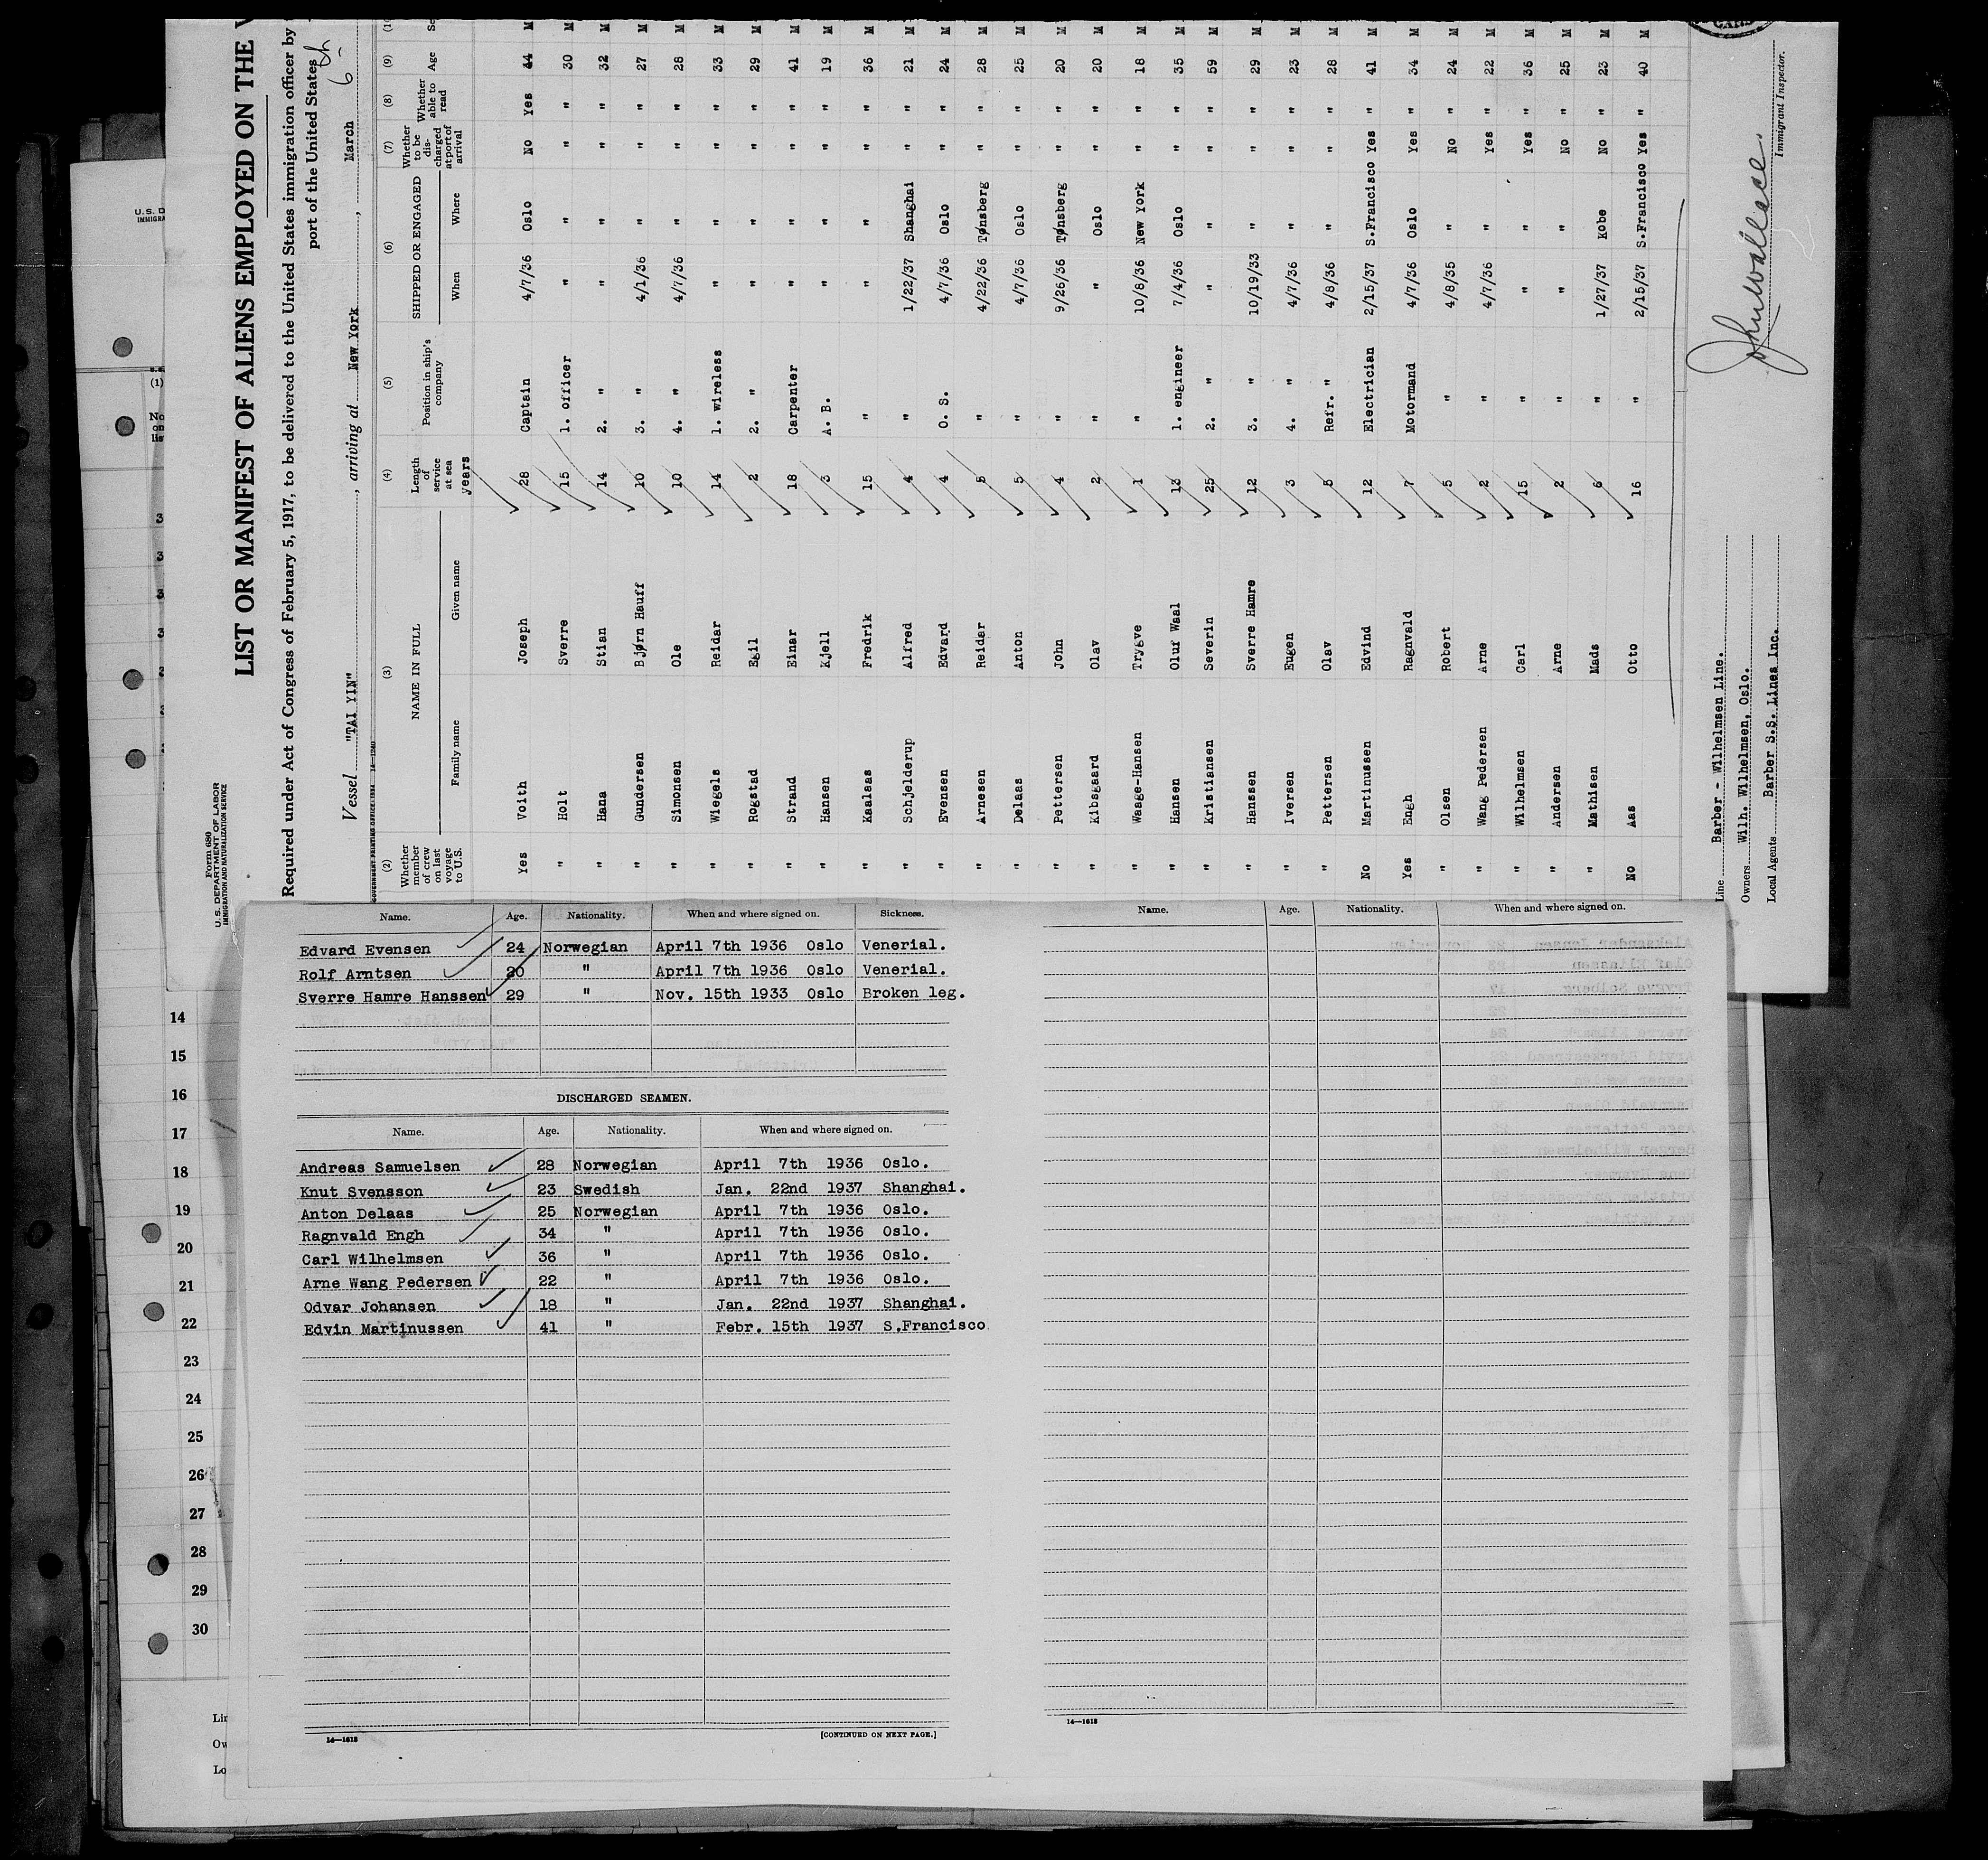 Form 680
U.S. DEPARTMENT OF LABOR
IMMIGRATION AND NATURALIZATION SERVICE
LIST OR MANIFEST OF ALIENS EMPLOYED ON THE
Required under Act of Congress of February 5, 1917, to be delivered to the United States immigration officer by
port of the United States
Vessel "TAI YIN", arriving at New York, March 6
(2) (3) (4) (5) (6) (7) (8) (9)
Whether member of crew on last voyage to U.S. NAME IN FULL Family name Given name Length of service at sea years Position in ship's company SHIPPED OR ENGAGED When Where Whether to be discharged at port of arrival Whether able to read Age
Yes Voith Joseph 28 Captain 4/7/36 Oslo No Yes 44 M
" Holt Sverre 15 1. officer " " " " 30 M
" Hana Stian 14 2. " " " " " 32 M
" Gundersen Bjørn Hauff 10 3. " 4/1/36 " " " 27 M
" Simonsen Ole 10 4. " 4/7/36 " " " 28 M
" Wiegels Reidar 14 1. wireless " " " " 33 M
" Rogstad Egil 2 2. " " " " " 29 M
" Strand Einar 18 Carpenter " " " " 41 M
" Hansen Kjell 3 A. B. " " " " 19 M
" Kaalaas Fredrik 15 " " " " " 36 M
" Schjelderup Alfred 4 " 1/22/37 Shanghai " " 21 M
" Evensen Edvard 4 O. S. 4/7/36 Oslo " " 24 M
" Arnesen Reidar 5 " 4/22/36 Tønsberg " " 28 M
" Delaas Anton 5 " 4/7/36 Oslo " " 25 M
" Pettersen John 4 " 9/26/36 Tønsberg " " 20 M
" Kibsgaard Olav 2 " " Oslo " " 20 M
" Waage-Hansen Trygve 1 " 10/8/36 New York " " 18 M
" Hansen Oluf Waal 13 1. engineer 7/4/36 Oslo " " 35 M
" Kristiansen Severin 25 2. " " " " " 59 M
" Hanssen Sverre Hamre 12 3. " 10/19/33 " " " 29 M
" Iversen Eugen 3 4. " 4/7/36 " " " 23 M
" Pettersen Olav 5 Refr. " 4/8/36 " " " 28 M
No Martinussen Edvind 12 Electrician 2/15/37 S.Francisco Yes " 41 M
Yes Engh Ragnvald 7 Motormand 4/7/36 Oslo Yes " 34 M
" Olsen Robert 5 " 4/8/35 " No " 24 M
" Wang Pedersen Arne 2 " 4/7/36 " Yes " 22 M
" Wilhelmsen Carl 15 " " " Yes " 36 M
" Andersen Arne 2 " " " No " 25 M
" Mathisen Mads 6 " 1/27/37 Kobe No " 23 M
No Aas Otto 16 " 2/15/37 S.Francisco Yes " 40 M
Line Barber - Wilhelmsen Line.
Owners Wilh. Wilhelmsen, Oslo.
Local Agents Barber S.S. Lines Inc.
John Wallace
Immigrant Inspector.
Name. Age. Nationality. When and where signed on. Sickness.
Edvard Evensen 24 Norwegian April 7th 1936 Oslo Venerial.
Rolf Arntsen 20 " April 7th 1936 Oslo Venerial.
Sverre Hamre Hanssen 29 " Nov. 15th 1933 Oslo Broken leg.
DISCHARGED SEAMEN.
Name. Age. Nationality. When and where signed on.
Andreas Samuelsen 28 Norwegian April 7th 1936 Oslo.
Knut Svensson 23 Swedish Jan. 22nd 1937 Shanghai.
Anton Delaas 25 Norwegian April 7th 1936 Oslo.
Ragnvald Engh 34 " April 7th 1936 Oslo.
Carl Wilhelmsen 36 " April 7th 1936 Oslo.
Arne Wang Pedersen 22 " April 7th 1936 Oslo.
Odvar Johansen 18 " Jan. 22nd 1937 Shanghai.
Edvin Martinussen 41 " Febr. 15th 1937 S.Francisco
14—1618
[CONTINUED ON NEXT PAGE.]
Name. Age. Nationality. When and where signed on.
14—1618
14
15
16
17
18
19
20
21
22
23
24
25
26
27
28
29
30